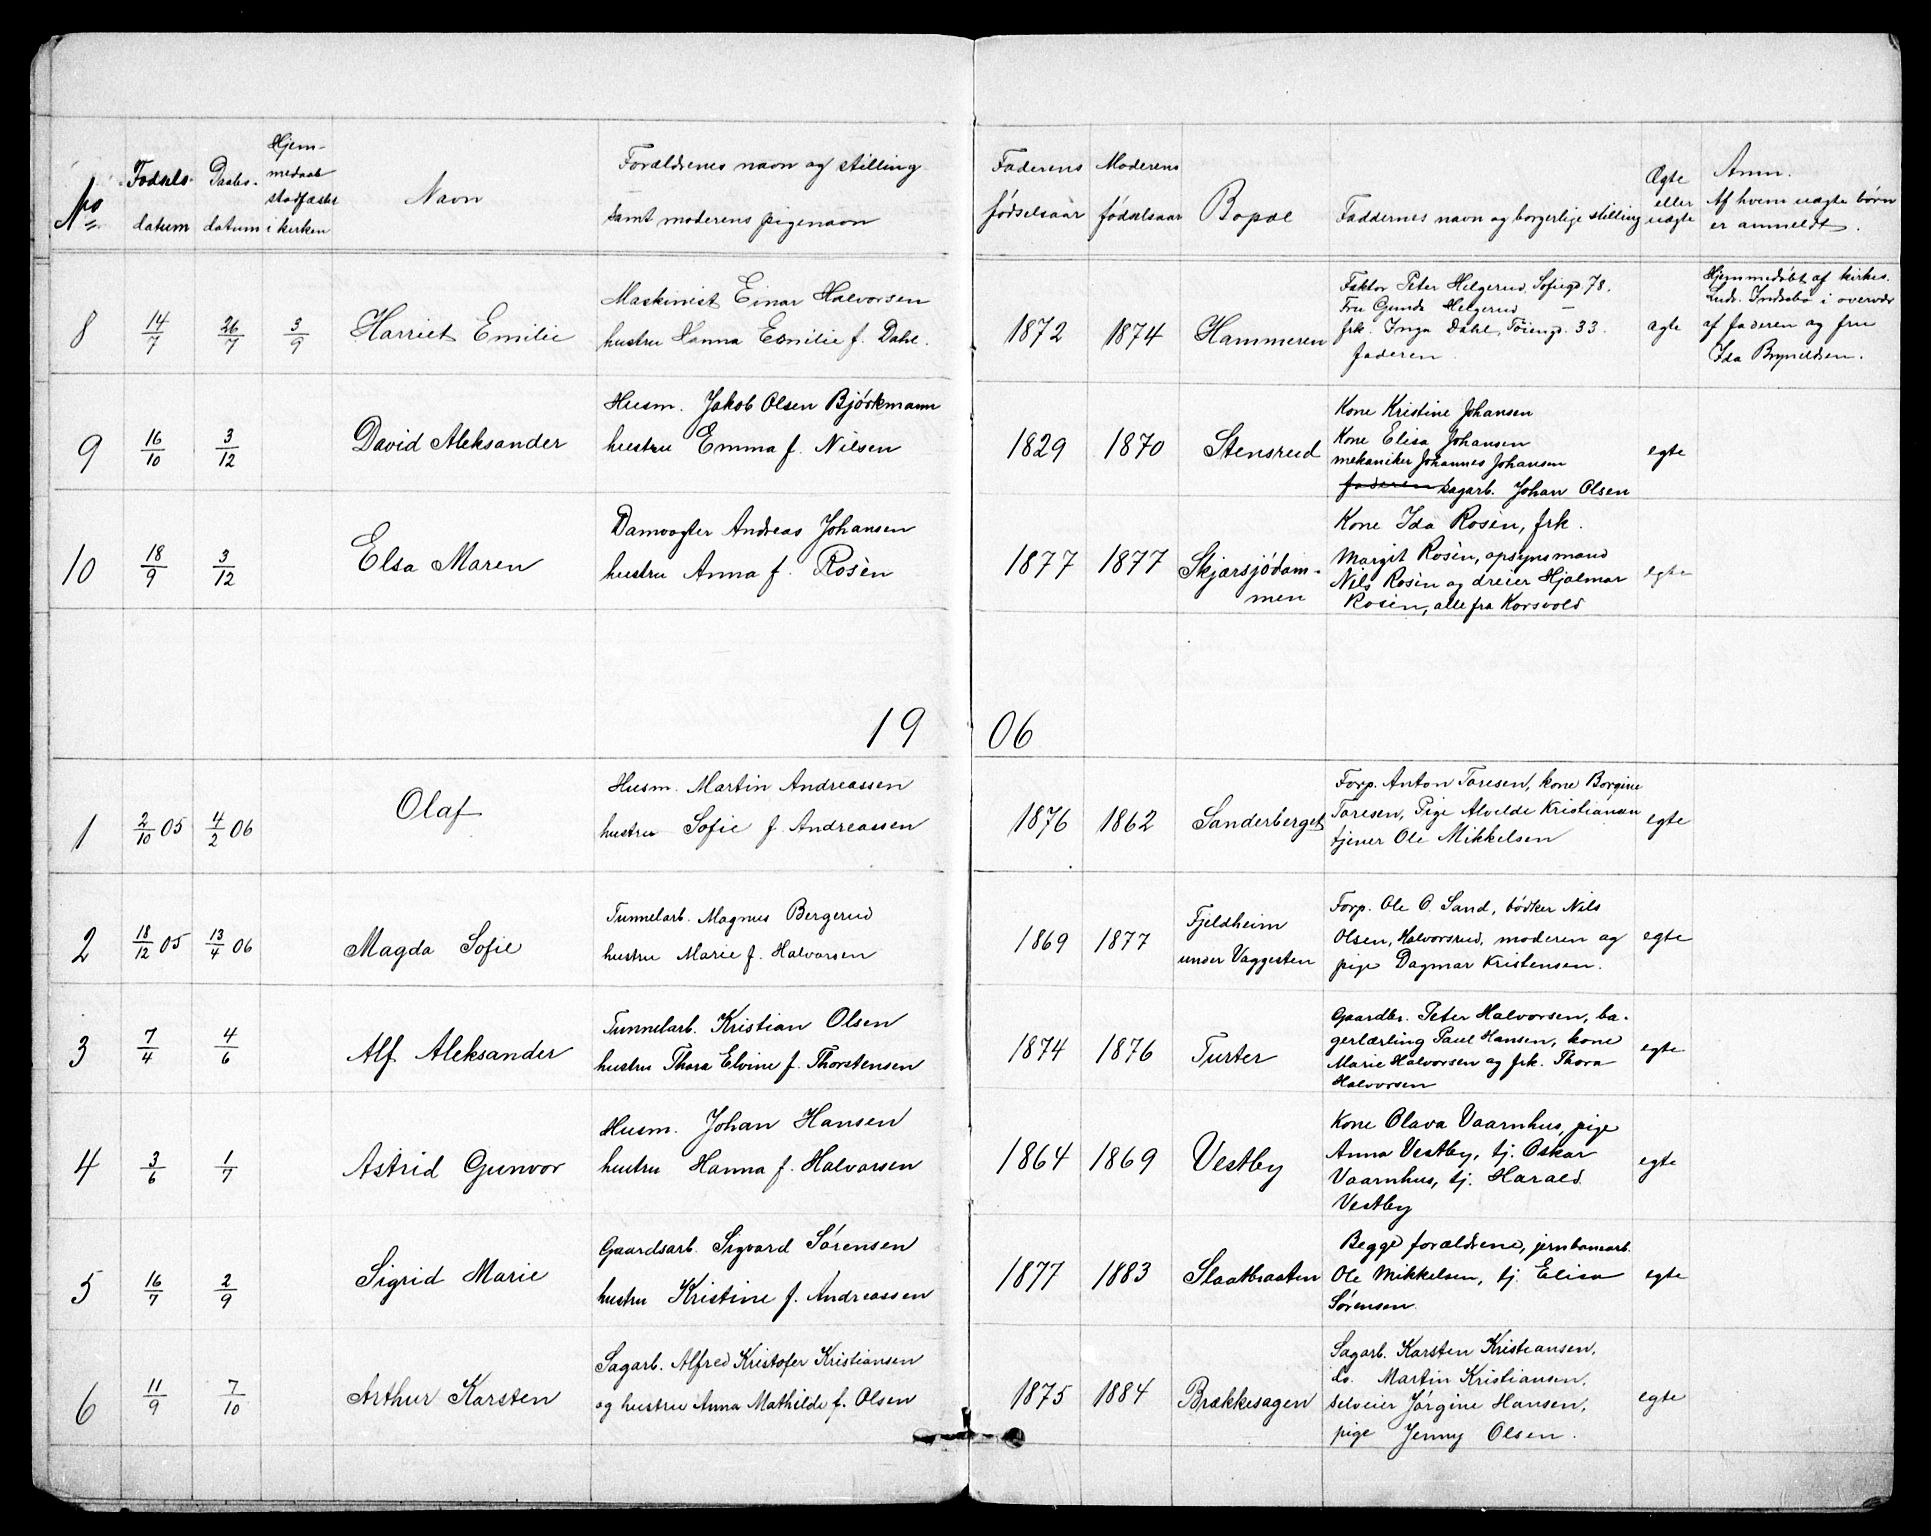 No Fødsels- datum Daabs- datum Hjem- medaab stadfæstet i kirken Navn Forældrenes navn og stilling samt moderens pigenavn Faderens fødselsaar Moderens fødselsaar Bopæl Faddernes navn og borgerlige stilling Ægte eller uægte Anm. Af hvem uægte børn er anmeldt.
8 14/7 26/7 3/9 Harriet Emilie
Maskinist Einar Halvorsen
hustru Hanna Emilie f. Dahl.
1872 1874 Hammeren
Faktor Peter Helgerud, Sofiegd. 78.
Fru Gunda Helgerud —
frk. Inga Dahl, Tøiengd. 33.
faderen.
ægte
Hjemmedøbt af kirkes.
Ludv. Indsebø i overvær
af faderen og fru
Ida Bryneldsen.
9 16/10 3/12 David Aleksander
Husm. Jakob Olsen Bjørkmann
hustru Emma f. Nilsen
1829 1870 Stensrud
Kone Kristine Johansen
Kone Elisa Johansen
mekaniker Johannes Johansen
faderen sagarb. Johan Olsen
egte
10 18/9 3/12 Elsa Maren
Damvogter Andreas Johansen
hustru Anna f. Rosèn
1877 1877 Skjærsjødam-
men
Kone Ida Rosèn, frk.
Margit Rosèn, opsynsmand
Nils Rosèn og dreier Hjalmar
Rosèn, alle fra Korsvold
egte
19 06
1 2/10 05 4/2 06 Olaf
Husm. Martin Andreassen
hustru Sofie f. Andreassen
1876 1862 Sanderberget
Forp. Anton Toresen, kone Borgine
Toresen, Pige Alvilde Kristiansen
tjener Ole Mikkelsen
egte
2 18/12 05 13/4 06 Magda Sofie
Tunnelarb. Magnus Bergerud
hustru Marie f. Halvorsen
1869 1877 Fjeldheim
under Vaggesten
Forp. Ole O. Sand, bødker Nils
Olsen, Halvorsrud, moderen og
pige Dagmar Kristensen.
egte
3 7/4 4/6 Alf Aleksander
Tunnelarb. Kristian Olsen
hustru Thora Elvine f. Thorstensen
1874 1876 Turter
Gaardbr. Peter Halvorsen, ba-
gerlærling Paul Hansen, kone
Marie Halvorsen og frk. Thora
Halvorsen
egte
4 3/6 1/7 Astrid Gunvor
Husm. Johan Hansen
hustru Hanna f. Halvorsen
1864 1869 Vestby
Kone Olava Vaarnhus, pige
Anna Vestby, tj. Oskar
Vaarnhus, tj. Harald
Vestby
egte
5 16/7 2/9 Sigrid Marie
Gaardsarb. Sigvard Sørensen
hustru Kristine f. Andreassen
1877 1883 Slaatbraaten
Begge forældrene, jernbanearb.
Ole Mikkelsen, tj. Elisa
Sørensen.
egte
6 11/9 7/10 Arthur Karsten
Sagarb. Alfred Kristofer Kristiansen
og hustru Anna Mathilde f. Olsen
1875 1884 Brækkesagen
Sagarb. Karsten Kristiansen,
do. Martin Kristiansen,
selveier Jørgine Hansen,
pige Jenny Olsen.
egte